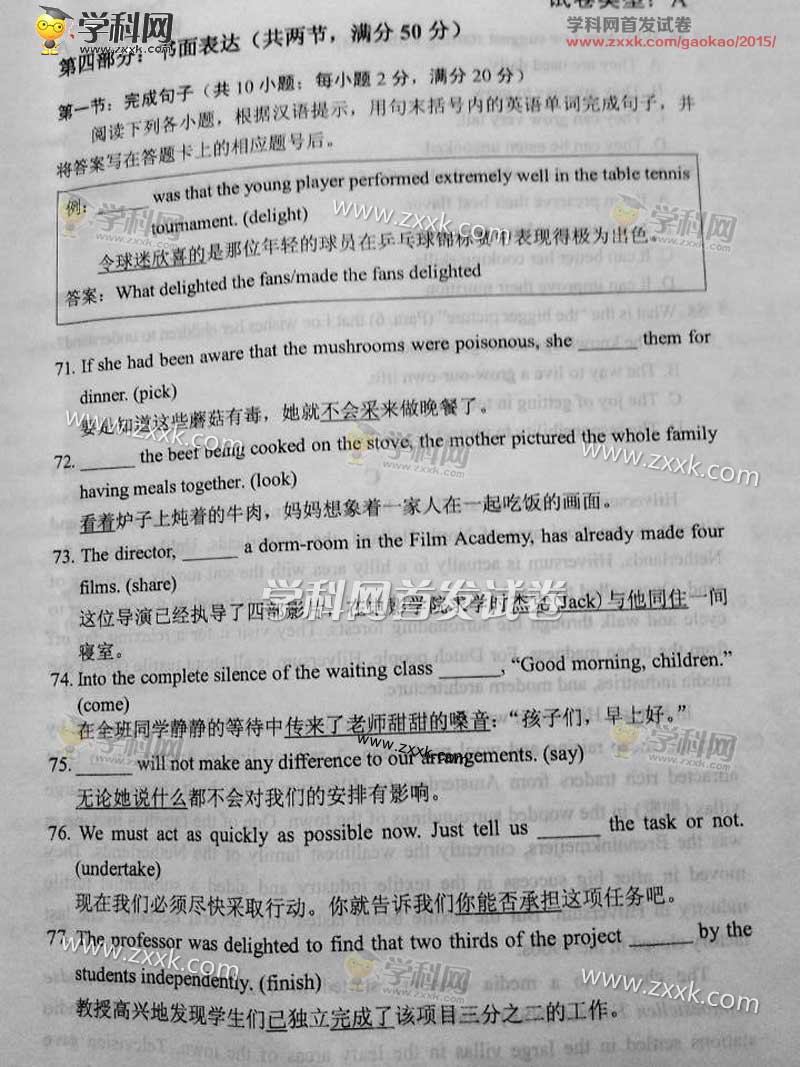 试卷类型：A
学科网首发试卷
www.zxxk.com/gaokao/2015/
学科网
www.zxxk.com
第四部分：书面表达（共两节，满分 50 分）
第一节：完成句子（共 10 小题；每小题 2 分，满分 20 分）
阅读下列各小题，根据汉语提示，用句末括号内的英语单词完成句子，并
将答案写在答题卡上的相应题号后。
例：______ was that the young player performed extremely well in the table tennis
tournament. (delight)
令球迷欣喜的是那位年轻的球员在乒乓球锦标赛中表现得极为出色。
答案：What delighted the fans/made the fans delighted
71. If she had been aware that the mushrooms were poisonous, she ______ them for
dinner. (pick)
要是知道这些蘑菇有毒，她就不会采来做晚餐了。
72. ______ the beef being cooked on the stove, the mother pictured the whole family
having meals together. (look)
看着炉子上炖着的牛肉，妈妈想象着一家人在一起吃饭的画面。
73. The director, ______ a dorm-room in the Film Academy, has already made four
films. (share)
学科网首发试卷
这位导演已经执导了四部影片，在电影学院求学时杰克(Jack)与他同住一间
寝室。
74. Into the complete silence of the waiting class ______, “Good morning, children.”
(come)
在全班同学静静的等待中传来了老师甜甜的嗓音：“孩子们，早上好。”
www.zxxk.com
75. ______ will not make any difference to our arrangements. (say)
无论她说什么都不会对我们的安排有影响。
76. We must act as quickly as possible now. Just tell us ______ the task or not.
(undertake)
现在我们必须尽快采取行动。你就告诉我们你能否承担这项任务吧。
77. The professor was delighted to find that two thirds of the project ______ by the
students independently. (finish)
教授高兴地发现学生们已独立完成了该项目三分之二的工作。